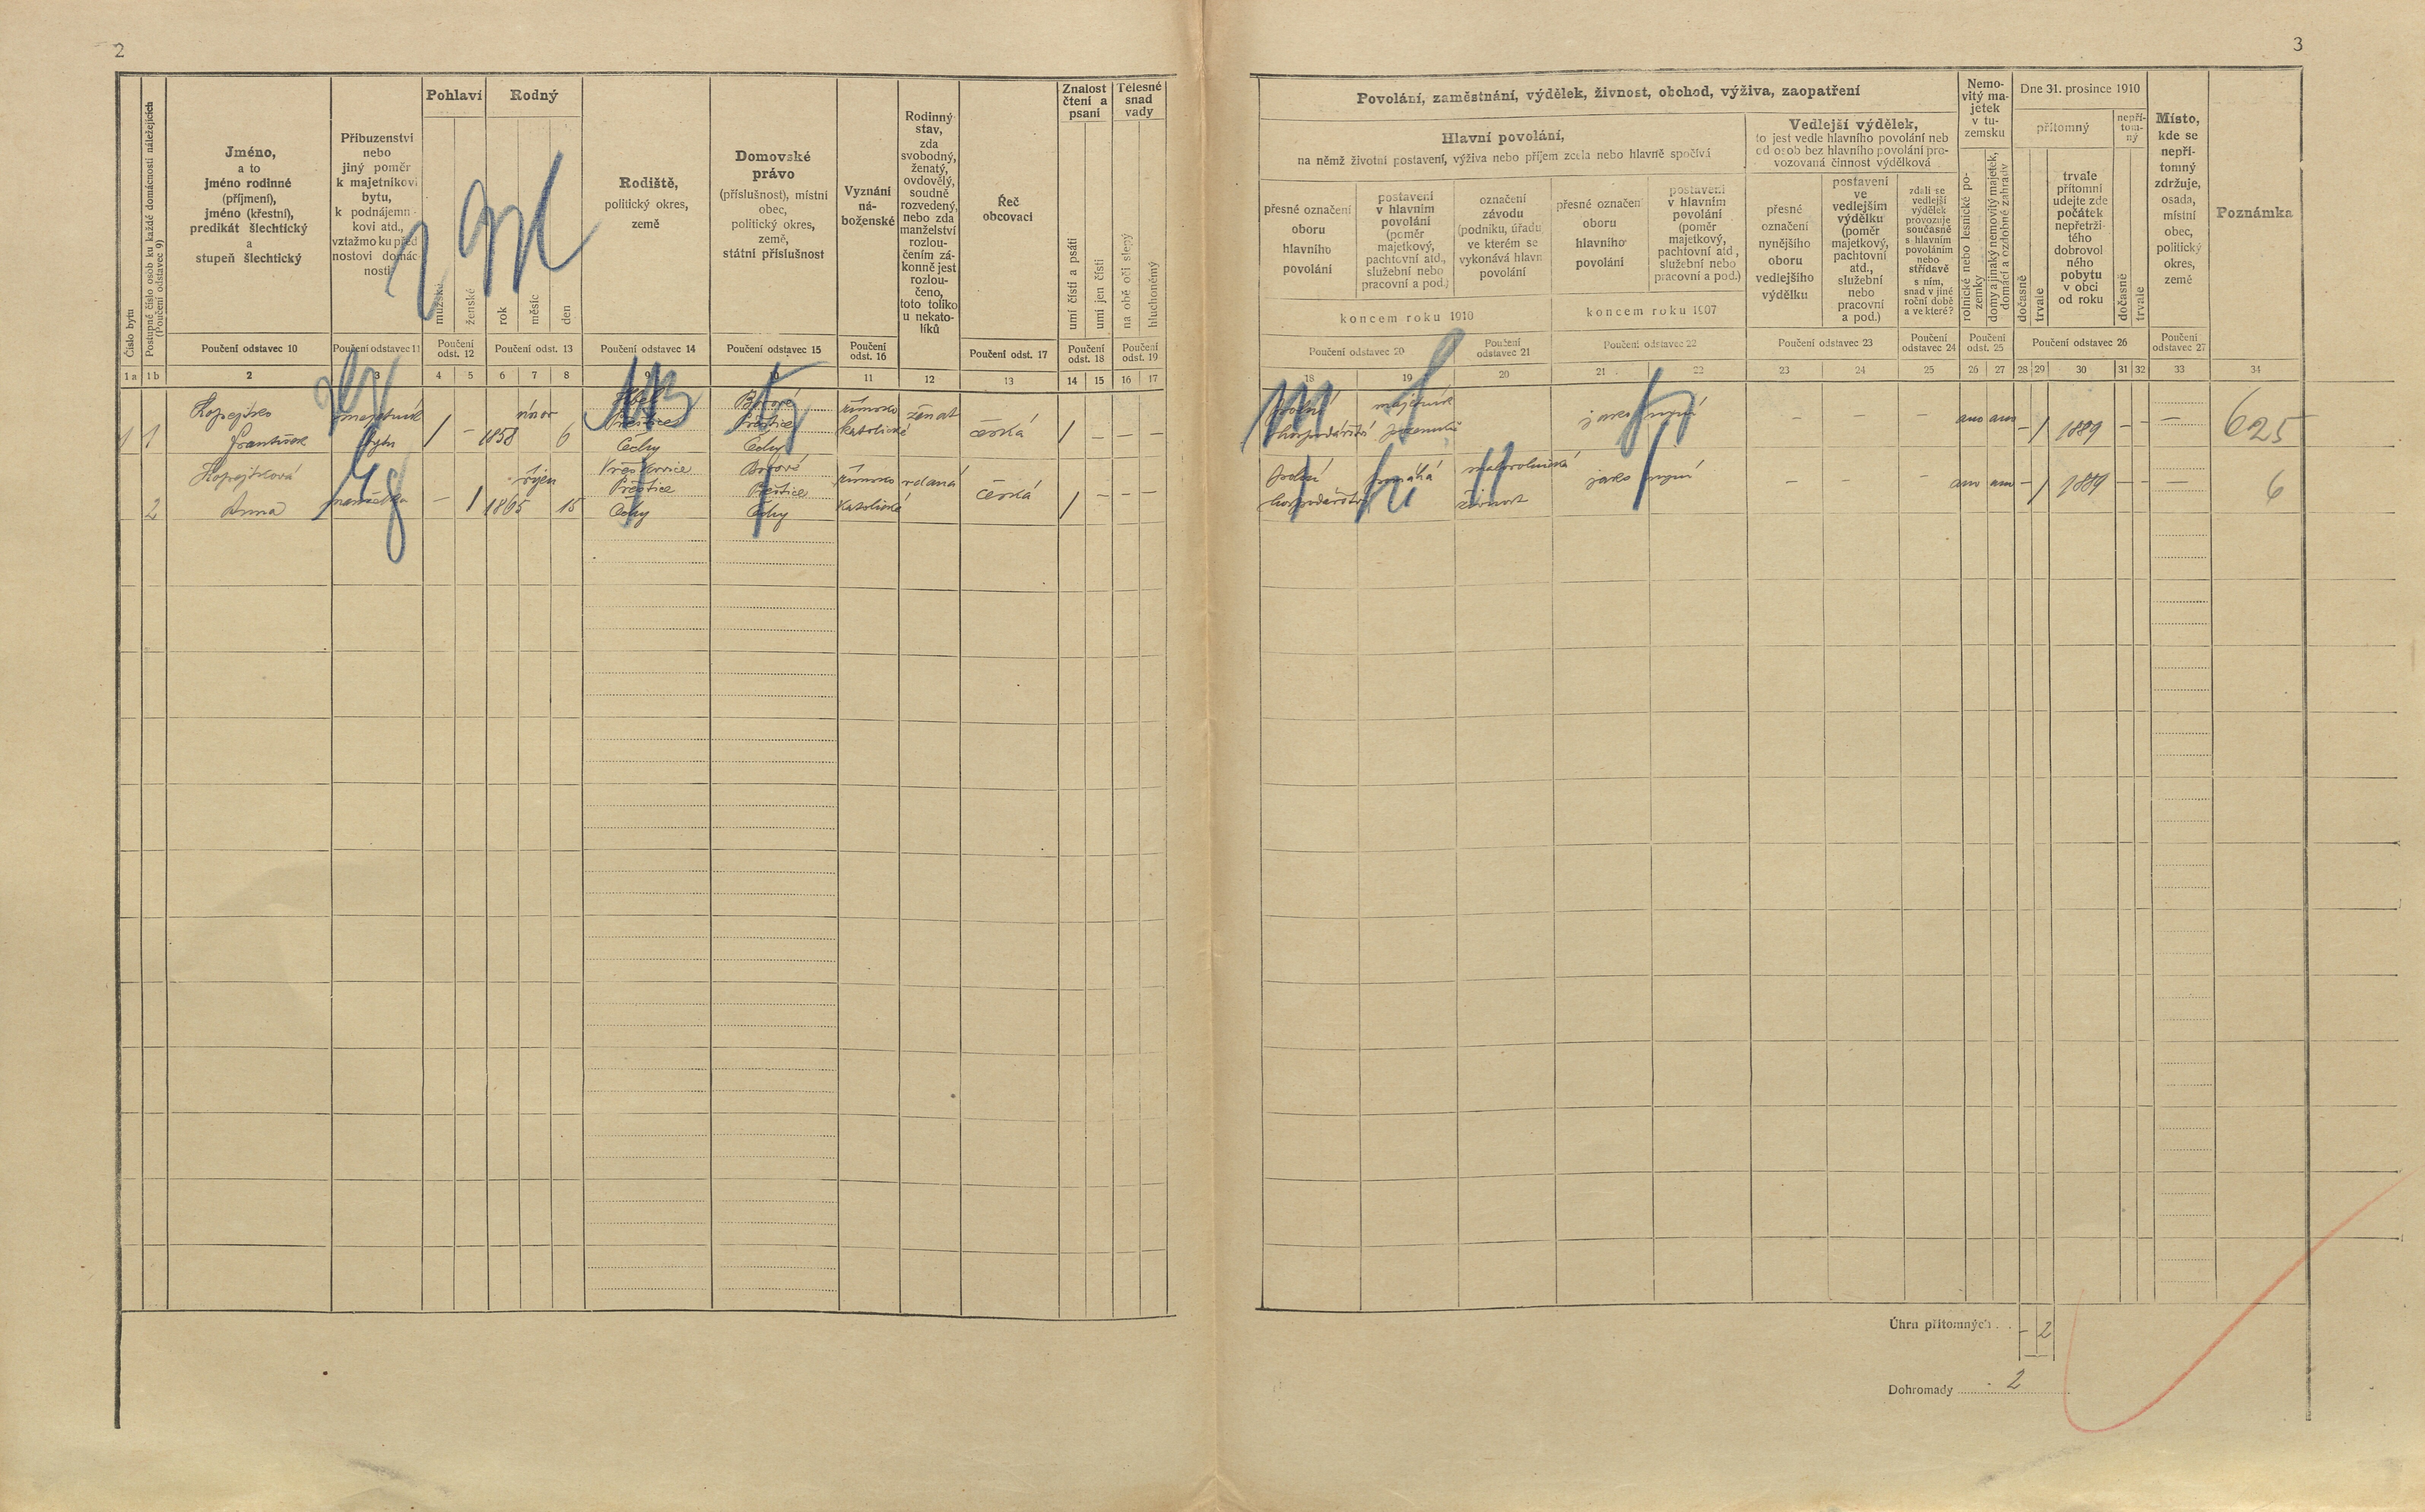 2
Číslo bytu
Postupné číslo osob ku každé domácnosti náležejících
(Poučení odstavec 9)
Jméno,
a to
jméno rodinné
(příjmení),
jméno (křestní),
predikát šlechtický
a
stupeň šlechtický
Příbuzenství
nebo
jiný poměr
k majetníkovi
bytu,
k podnájemní-
kovi atd.,
vztažmo ku před
nostovi domác-
nosti
Pohlaví
mužské
ženské
Rodný
rok
měsíc
den
Rodiště,
politický okres,
země
Domovské
právo
(příslušnost), místní
obec,
politický okres,
země,
státní příslušnost
Vyznání
ná-
boženské
Rodinný
stav,
zda
svobodný,
ženatý,
ovdovělý,
soudně
rozvedený,
nebo zda
manželství
rozlou-
čením zá-
konně jest
rozlou-
čeno,
toto toliko
u nekato-
líků
Řeč
obcovací
Znalost
čtení a
psaní
umí čísti a psáti
umí jen čísti
Tělesné
snad
vady
na obě oči slepý
hluchoněmý
Poučení odstavec 10
Poučení odstavec 11
Poučení
odst. 12
Poučení odst. 13
Poučení odstavec 14
Poučení odstavec 15
Poučení
odst. 16
Poučení odst. 17
Poučení
odst. 18
Poučení
odst. 19
1a 1b 2 3 4 5 6 7 8 9 10 11 12 13 14 15 16 17
1 1 Kopejtko
František
majetník
bytu
/ – 1858 únor 6
Přeštice
Čechy
Borové
Přeštice
Čechy
římsko
katolické
ženat
česká
/ – – –
2 Kopejtková
Anna
manželka
– / 1865 říjen 15
Přeštice
Čechy
Borové
Přeštice
Čechy
římsko
katolické
vdaná
česká
/ – – –
3
Povolání, zaměstnání, výdělek, živnost, obchod, výživa, zaopatření
Hlavní povolání,
na němž životní postavení, výživa nebo příjem zcela nebo hlavně spočívá
přesné označení
oboru
hlavního
povolání
postavení
v hlavním
povolání
(poměr
majetkový,
pachtovní atd.,
služební nebo
pracovní a pod.)
označení
závodu
(podniku, úřadu)
ve kterém se
vykonává hlavní
povolání
přesné označení
oboru
hlavního
povolání
postavení
v hlavním
povolání
(poměr
majetkový,
pachtovní atd.,
služební nebo
pracovní a pod.)
koncem roku 1910
koncem roku 1907
Vedlejší výdělek,
to jest vedle hlavního povolání neb
od osob bez hlavního povolání pro-
vozovaná činnost výdělková
přesné
označení
nynějšího
oboru
vedlejšího
výdělku
postavení
ve
vedlejším
výdělku
(poměr
majetkový,
pachtovní
atd.,
služební
nebo
pracovní
a pod.)
zdali se
vedlejší
výdělek
provozuje
současně
s hlavním
povoláním
nebo
střídavě
s ním,
snad v jiné
roční době
a ve které?
Nemo-
vitý ma-
jetek
v tu-
zemsku
rolnické nebo lesnické po-
zemky
domy a jinaký nemovitý majetek,
domácí a ozdobné zahrady
Dne 31. prosince 1910
přítomný
dočasně
trvale
trvale
přítomní
udejte zde
počátek
nepřetrži-
tého
dobrovol
ného
pobytu
v obci
od roku
nepří-
tom-
ný
dočasně
trvale
Místo,
kde se
nepří-
tomný
zdržuje,
osada,
místní
obec,
politický
okres,
země
Poznámka
Poučení odstavec 20
Poučení
odstavec 21
Poučení odstavec 22
Poučení odstavec 23
Poučení
odstavec 24
Poučení
odst. 25
Poučení odstavec 26
Poučení
odstavec 27
18 19 20 21 22 23 24 25 26 27 28 29 30 31 32 33 34
polní
hospodářství
majetník
pozemků
jako nyní
– – – ano ano – / 1889 – – – 625
polní
hospodářství
pomáhá
malorolnická
živnost
jako nyní
– – – ano ano – / 1889 – – – 6
Úhrn přítomných . . – 2
Dohromady 2